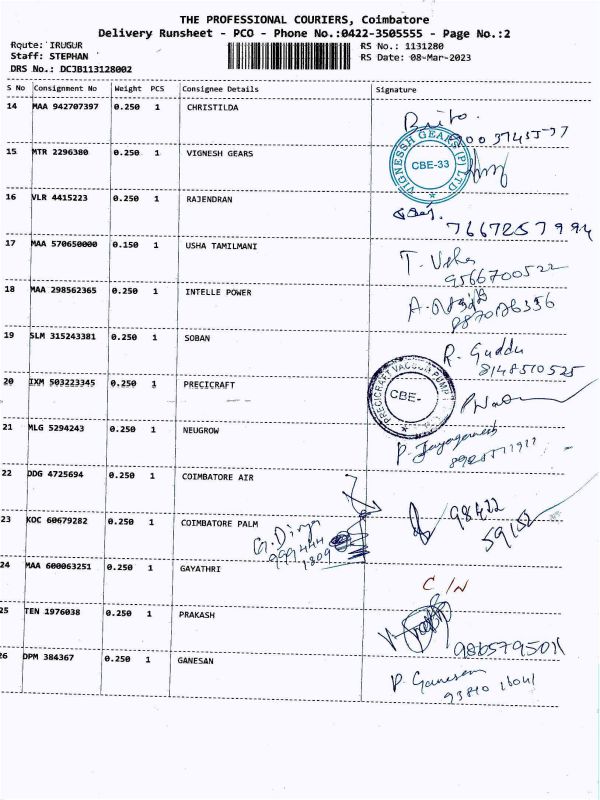 THE PROFESSIONAL COURIERS, Coimbatore
Delivery Runsheet - PCO - Phone No.:0422-3505555 - Page No.:2
Route: IRUGUR RS No.: 1131280
Staff: STEPHAN RS Date: 08-Mar-2023
DRS No.: DCJB113128002
S No Consignment No Weight PCS Consignee Details Signature
14 MAA 942707397 0.250 1 CHRISTILDA
Brito.
15 MTR 2296380 0.250 1 VIGNESH GEARS
VIGNESSH GEARS (P) LTD
CBE-33
16 VLR 4415223 0.250 1 RAJENDRAN
7667257994
17 MAA 570650000 0.150 1 USHA TAMILMANI
T. Usha
9566700522
18 MAA 298562365 0.250 1 INTELLE POWER
19 SLM 315243381 0.250 1 SOBAN
R. Guddu
8148510525
20 IXM 503223345 0.250 1 PRECICRAFT
PRECICRAFT VACUUM PUMP
CBE-
21 MLG 5294243 0.250 1 NEUGROW
P. Jayaganesh
22 DDG 4725694 0.250 1 COIMBATORE AIR
98422
59152
23 KOC 60679282 0.250 1 COIMBATORE PALM
G. Divya
999444
1809
24 MAA 600063251 0.250 1 GAYATHRI
C/N
25 TEN 1976038 0.250 1 PRAKASH
26 DPM 384367 0.250 1 GANESAN
P. Ganesan